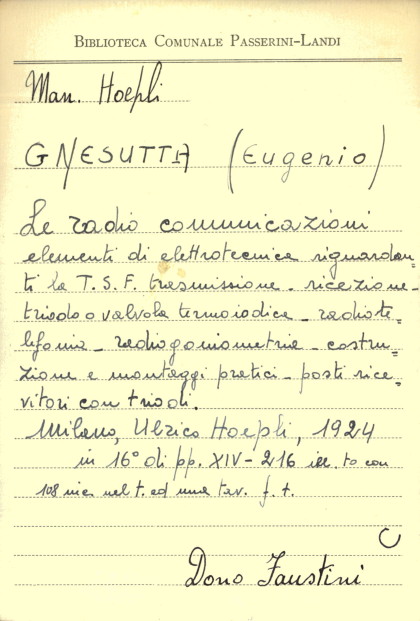 BIBLIOTECA COMUNALE PASSERINI-LANDI
Man. Hoepli
GNESUTTA (Eugenio)
Le radio comunicazioni
elementi di elettrotecnica riguardan=
ti la T. S. F. trasmissione - ricezione -
triodo o valvola termoiodica - radiote=
lefonia - radiogoniometria - costru=
zione e montaggi pratici - posti rice=
vitori con triodi.
Milano, Ulrico Hoepli, 1924
in 16° di pp. XIV - 216 ill. to con
108 inc. nel t. ed una tav. f. t.
C
Dono Faustini